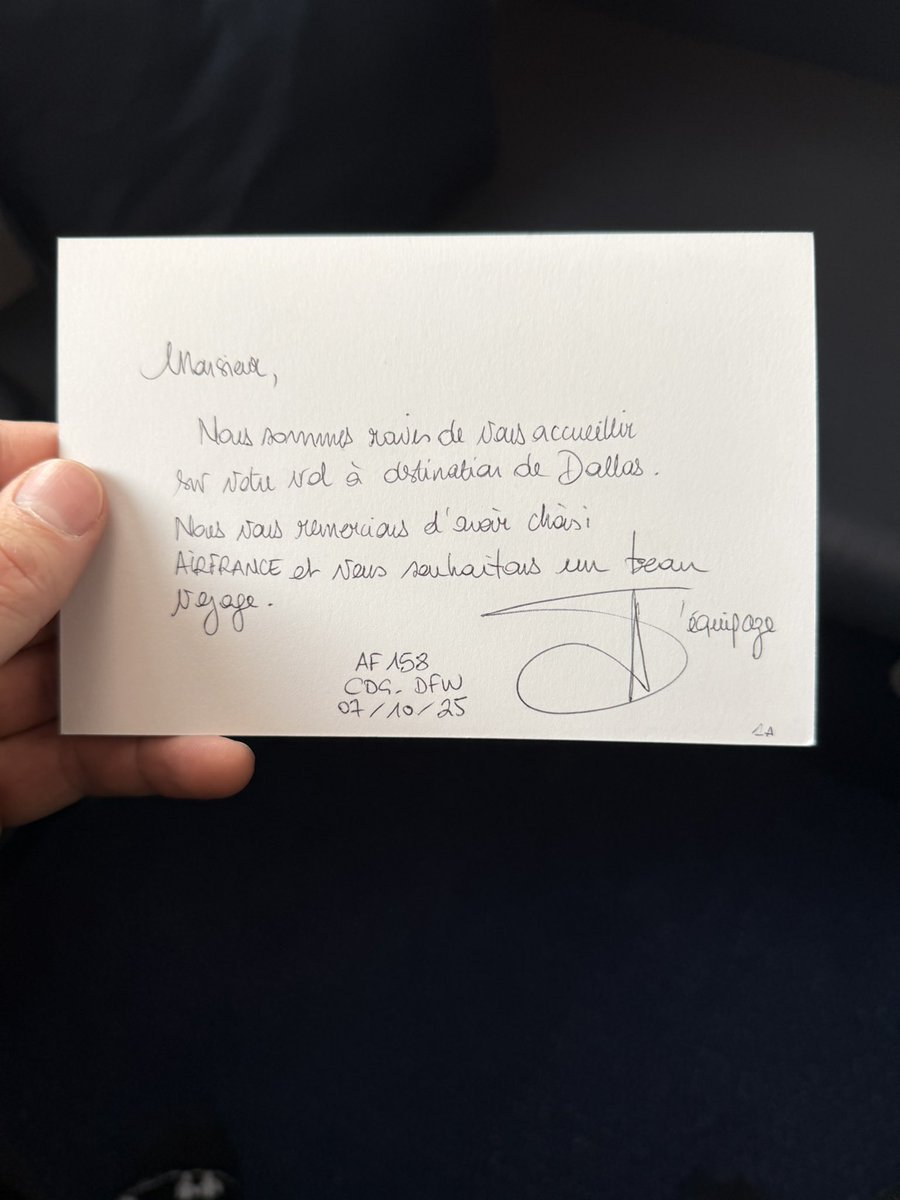 Monsieur,
Nous sommes ravis de vous accueillir
sur votre vol à destination de Dallas.
Nous vous remercions d'avoir choisi
AIRFRANCE et vous souhaitons un beau
voyage.
L'équipage
AF 158
CDG - DFW
07/10/25